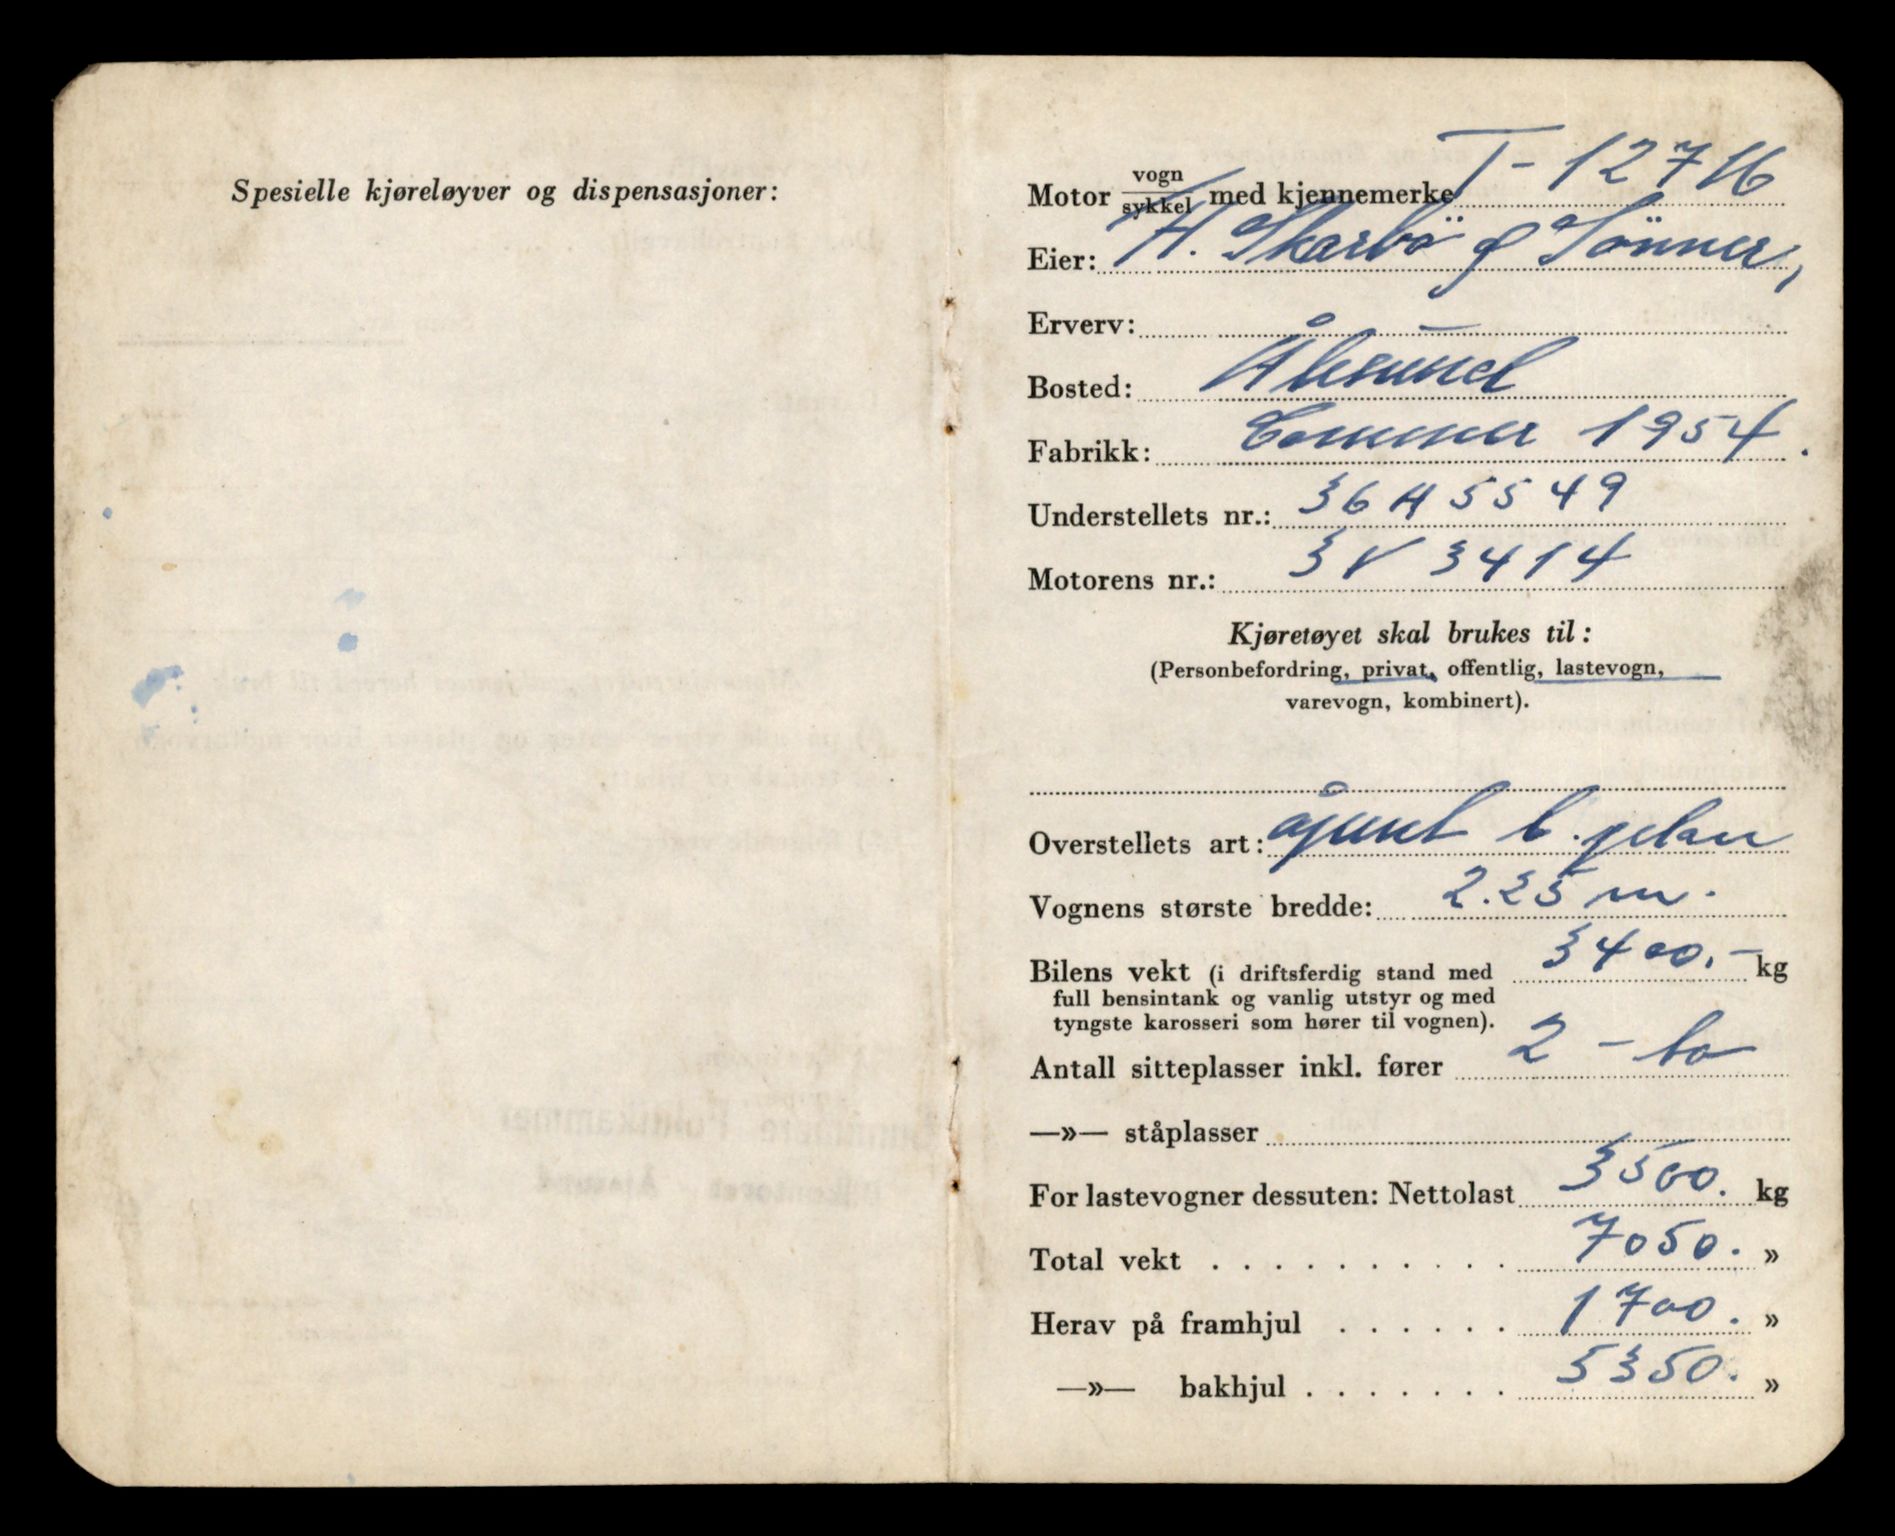 Spesielle kjøreløyver og dispensasjoner:
Motor vogn/sykkel med kjennemerke T-12716
Eier: H. Skarbö & Sönner,
Erverv: —
Bosted: Ålesund
Fabrikk: Commer 1954.
Understellets nr.: 36 H 5549
Motorens nr.: 3 V 3414
Kjøretøyet skal brukes til:
(Personbefordring, privat, offentlig, lastevogn,
varevogn, kombinert).
Overstellets art: åpent l. plan
Vognens største bredde: 2.25 m.
Bilens vekt (i driftsferdig stand med 3400.- kg
full bensintank og vanlig utstyr og med
tyngste karosseri som hører til vognen).
Antall sitteplasser inkl. fører 2 - to
—»— ståplasser
For lastevogner dessuten: Nettolast 3500. kg
Total vekt . . . . . . . . . . 7050. »
Herav på framhjul . . . . . . 1700. »
—»— bakhjul . . . . . . . 5350. »